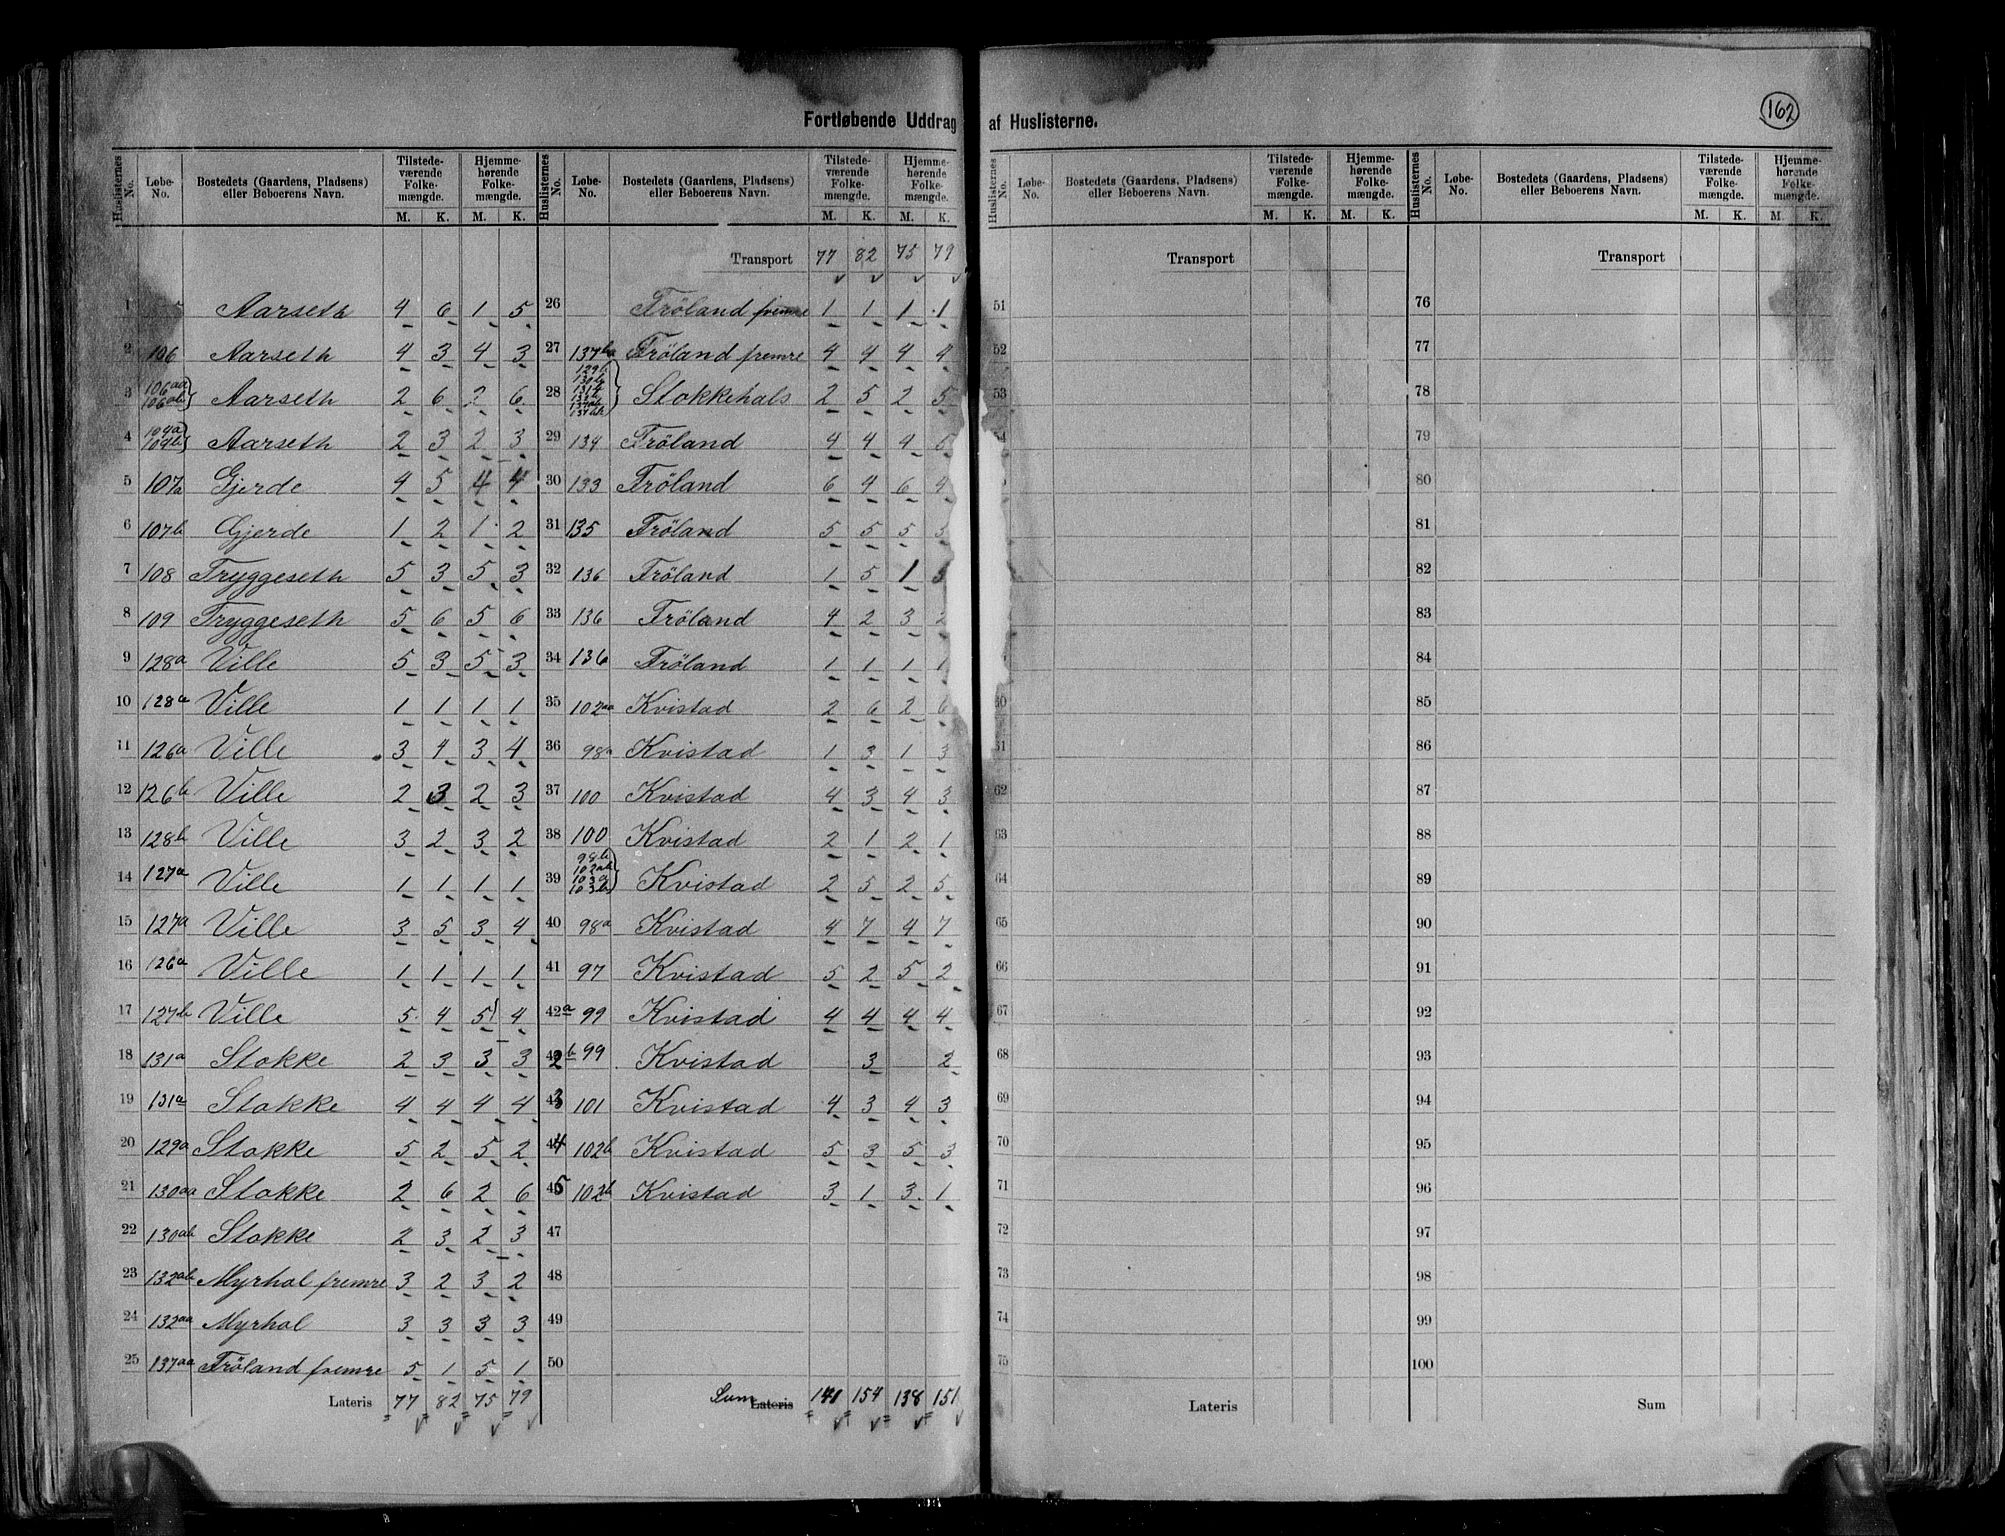 162
Fortløbende Uddrag af Huslisterne.
Huslisternes No. Løbe-No. Bostedets (Gaardens, Pladsens) eller Beboerens Navn. Tilstedeværende Folkemængde. M. K. Hjemmehørende Folkemængde. M. K.
1 Aarseth 4 6 1 5
2 106 Aarseth 4 3 4 3
3 106aa 106ab } Aarseth 2 6 2 6
4 104a 104b } Aarseth 2 3 2 3
5 107a Gjerde 4 5 4 4
6 107b Gjerde 1 2 1 2
7 108 Tryggeseth 5 3 5 3
8 109 Tryggeseth 5 6 5 6
9 128a Ville 5 3 5 3
10 128a Ville 1 1 1 1
11 126a Ville 3 4 3 4
12 126b Ville 2 3 2 3
13 128b Ville 3 2 3 2
14 127a Ville 1 1 1 1
15 127a Ville 3 5 3 4
16 126a Ville 1 1 1 1
17 127b Ville 5 4 5 4
18 131a Stokke 2 3 3 3
19 131a Stokke 4 4 4 4
20 129a Stokke 5 2 5 2
21 130aa Stokke 2 6 2 6
22 130ab Stokke 2 3 2 3
23 132ab Myrhol fremre 3 2 3 2
24 132aa Myrhol 3 3 3 3
25 137aa Fröland fremre 5 1 5 1
Lateris 77 82 75 79
Huslisternes No. Løbe-No. Bostedets (Gaardens, Pladsens) eller Beboerens Navn. Tilstedeværende Folkemængde. M. K. Hjemmehørende Folkemængde. M. K.
Transport 77 82 75 79
26 Fröland fremre 1 1 1 1
27 137ba Fröland fremre 4 4 4 4
28 129b 130b Stokkehals 2 5 2 5
29 134 Fröland 4 4 4
30 133 Fröland 6 4 6 4
31 135 Fröland 5 5 5 5
32 136 Fröland 1 5 1 5
33 136 Fröland 4 2 3 2
34 136 Fröland 1 1 1 1
35 102aa Kvistad 2 6 2 6
36 98a Kvistad 1 3 1 3
37 100 Kvistad 4 3 4 3
38 100 Kvistad 2 1 2 1
39 98b 102ab 103a 103b } Kvistad 2 5 2 5
40 98a Kvistad 4 7 4 7
41 97 Kvistad 5 2 5 2
42a 99 Kvistad 4 4 4 4
42b 99 Kvistad 3 2
43 101 Kvistad 4 3 4 3
44 102b Kvistad 5 3 5 3
45 102b Kvistad 3 1 3 1
47
48
49
50
Sum Lateris 141 154 138 151
Huslisternes No. Løbe-No. Bostedets (Gaardens, Pladsens) eller Beboerens Navn. Tilstedeværende Folkemængde. M. K. Hjemmehørende Folkemængde. M. K.
Transport
51
52
53
54
62
63
64
65
66
67
68
69
70
71
72
73
74
75
Lateris
Huslisternes No. Løbe-No. Bostedets (Gaardens, Pladsens) eller Beboerens Navn. Tilstedeværende Folkemængde. M. K. Hjemmehørende Folkemængde. M. K.
Transport
76
77
78
79
80
81
82
83
84
85
86
87
88
89
90
91
92
93
94
95
96
97
98
99
100
Sum